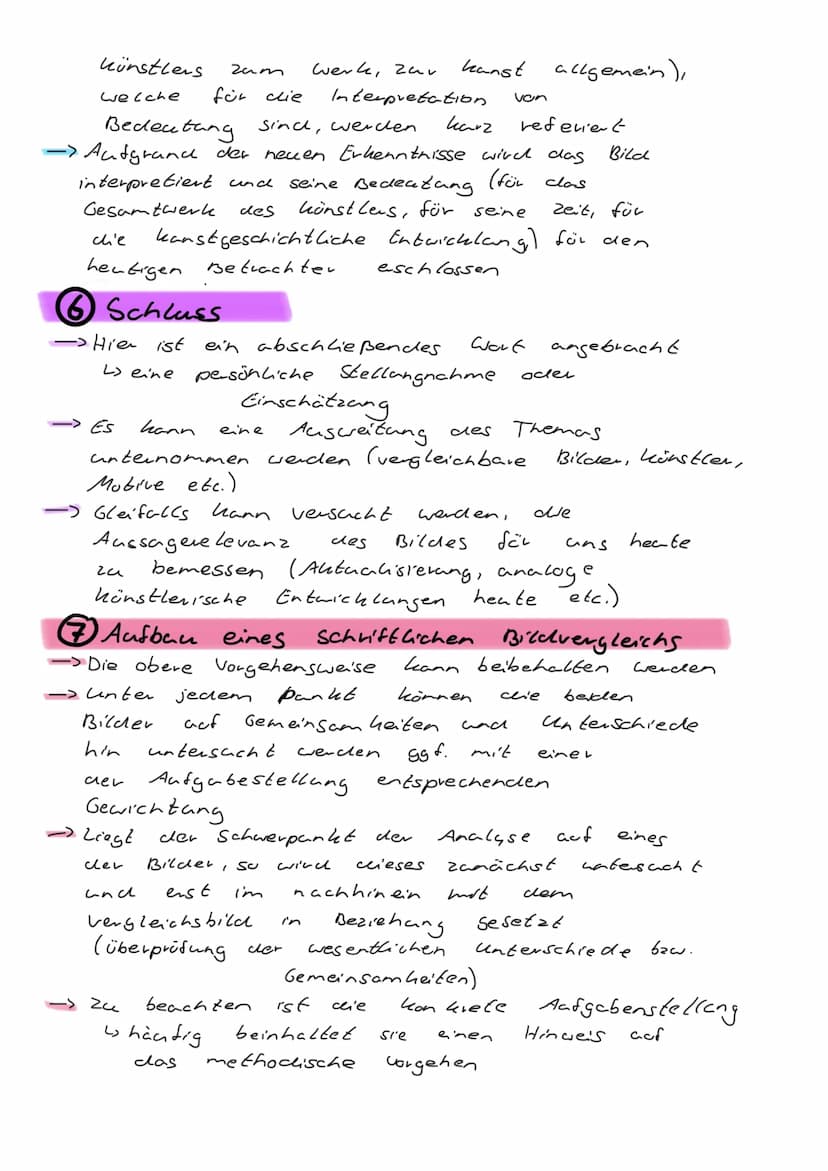 Künstlers zum Werk, zur Kunst allgemein),
welche für die Interpretation von
Bedeutung sind, werden kurz referiert
→ Aufgrund der neuen Erkenntnisse wird das Bild
interpretiert und seine Bedeutung (für das
Gesamtwerk des Künstlers, für seine Zeit, für
die kunstgeschichtliche Entwicklung) für den
heutigen Betrachter eschlossen
⑥ Schluss
→ Hier ist ein abschließendes Wort angebracht
↳ eine persönliche Stellungnahme oder
Einschätzung
→ Es kann eine Ausweitung des Themas
unternommen werden (vergleichbare Bilder, Künstler,
Motive etc.)
→ Gleifalls kann versucht werden, die
Aussagerelevanz des Bildes für uns heute
zu bemessen (Aktualisierung, analoge
künstlerische Entwicklungen heute etc.)
⑦ Aufbau eines schriftlichen Bildvergleichs
→ Die obere Vorgehensweise kann beibehalten werden
→ Unter jedem Punkt können die beiden
Bilder auf Gemeinsamkeiten und Unterschiede
hin untersucht werden ggf. mit einer
der Aufgabestellung entsprechenden
Gewichtung
→ Liegt der Schwerpunkt der Analyse auf eines
der Bilder, so wird dieses zunächst untersucht
und erst im nachhinein mit dem
Vergleichsbild in Beziehung gesetzt
(Überprüfung der wesentlichen Unterschiede bzw.
Gemeinsamkeiten)
→ Zu beachten ist die konkrete Aufgabenstellung
↳ häufig beinhaltet sie einen Hinweis auf
das methodische Vorgehen